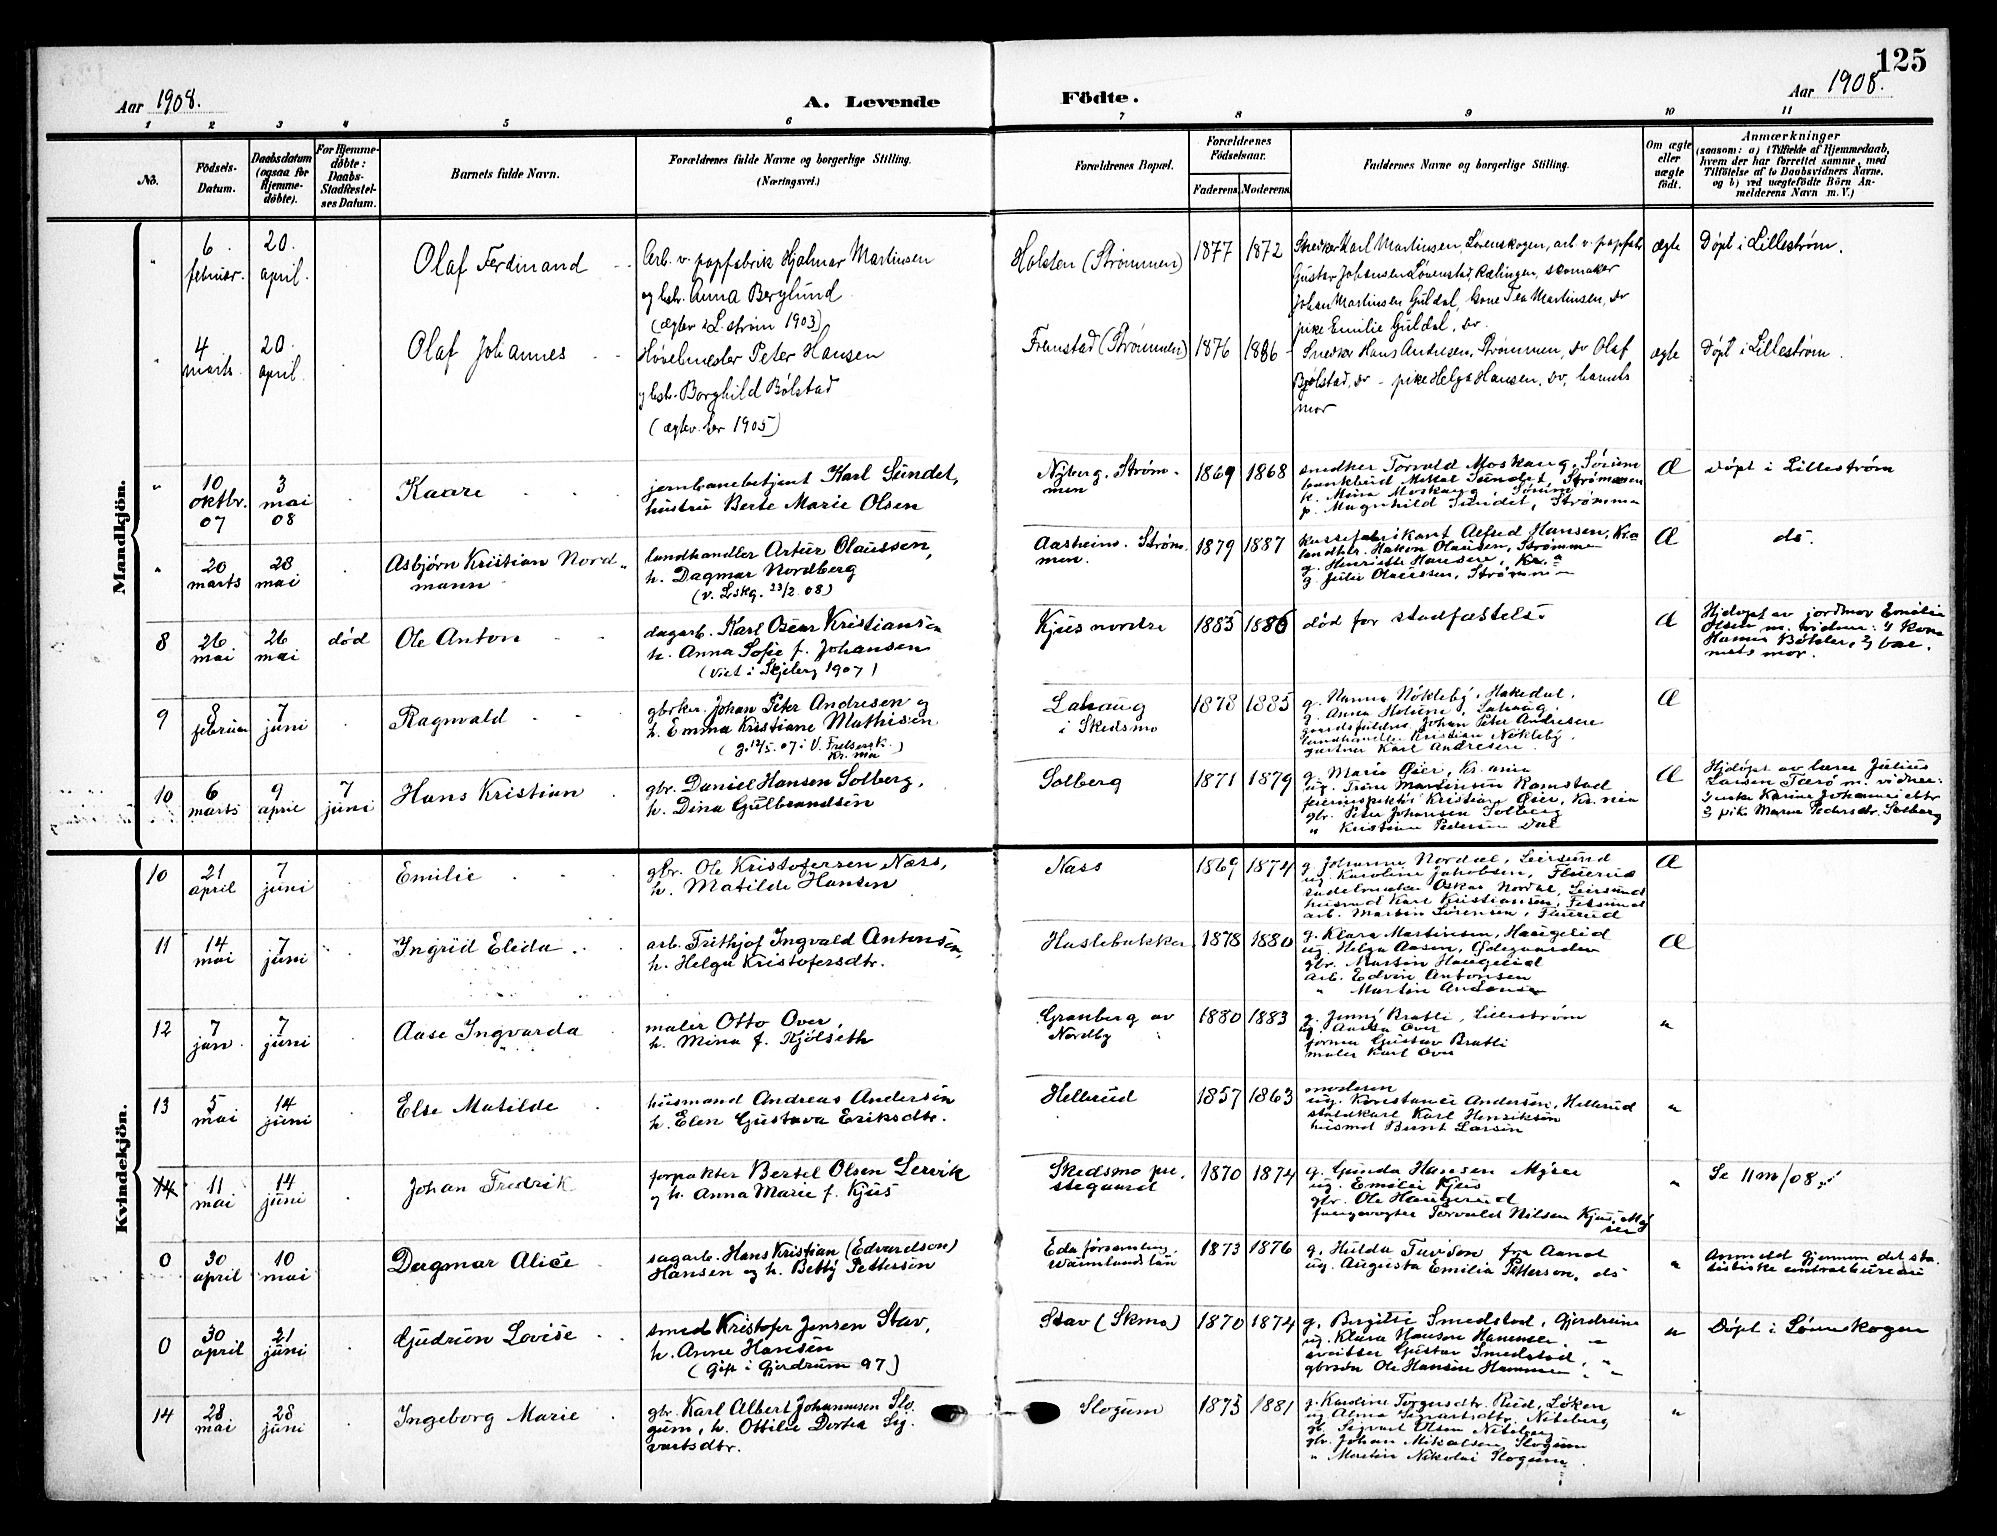 125
Aar 1908.
A. Levende
Födte.
Aar 1908.
1 2 3 4 5 6 7 8 9 10 11
No.
Födsels-Datum.
Daabsdatum (ogsaa for Hjemme-döbte).
For Hjemme-döbte: Daabs-Stadfæstelses Datum.
Barnets fulde Navn.
Forældrenes fulde Navne og borgerlige Stilling.
(Næringsvei.)
Forældrenes Bopæl.
Forældrenes Födselsaar.
Faderens. Moderens.
Faddernes Navne og borgerlige Stilling.
Om ægte eller uægte födt.
Anmærkninger
(saasom: a) i Tilfælde af Hjemmedaab, hvem der har forrettet samme, med Tilföielse af to Daabsvidners Navne, og b) ved uægtefödte Börn Anmelderens Navn m. V.)
Mandkjön.
" 6 februar. 20. april. Olaf Ferdinand Arb. v. papfabrik Hjalmar Martinsen
og hstr. Anna Berglund
(ægtev i L.strøm 1903)
Holsten (Strømmen) 1877 1872 Snedker Karl Martinsen, Lørenskogen, arb v. papfabr
Gustav Johansen Lørenstad, Rælingen, skomaker
Johan Martinsen Guldal, kone Tea Martinsen, sv
pike Emilie Guldal, sv.
ægte Døpt i Lillestrøm.
" 4 marts. 20. april. Olaf Johannes Høvelmester Peter Hansen
og hstr. Borghild Bølstad
(ægtev. her 1905)
Fremstad (Strømmen) 1876 1886 Snedker Hans Andresen, Strømmen, sv Olaf
Bjølstad, sv - pike Helga Hansen, sv, barnets
mor
ægte Døpt i Lillestrøm.
" 10 oktbr. 07 3 mai 08 Kaare jernbanebetjent Karl Sundet,
hustru Berte Marie Olsen
Nyberg. Strømmen 1869 1868 snedker Torvald Moskaug, Sørum
bankbud Mikal Sundet, Strømmen
p. Mina Moskaug Sørum
p. Magnhild Sundet, Strømmen
Æ døpt i Lillestrøm
" 20 marts 28 mai Asbjørn Kristian Nordmann
landhandler Artur Olaussen,
h. Dagmar Nordberg
(v. Lskg. 23/2 08)
Aasheim. Strømmen. 1879 1887 kassefabrikant Alfred Hansen, Kr.a
landhr. Hakon Olausen, Strømmen
g. Henriette Hansen, Kr.a
g. Julie Olaussen, Strømmen
Æ ds.
8 26 mai 26 mai død Ole Anton dagarb. Karl Oscar Kristiansen
h. Anna Sofie f. Johansen
(viet i Skjeberg 1907)
Kjus nordre 1883 1886 død før stadfæstelse
Æ Hjdøpt av jordmor Emilie
Olsen m. vidner: 1) kone
Hanna Bøhler, 2) barnets mor.
9 8 februar 7 juni Ragnvald gbrker. Johan Peter Andresen og
h. Emma Kristiane Mathisen
(g. 12/5. 07 i V. Frelsersk. Kr.nia)
Lahaug i Skedsmo 1878 1885 g. Hanna Nökleby, Hakedal.
g. Anna Holum, Lahaug.
gaardsfuldm. Johan Peter Andresen
landhandler Kristian Nökleby
gartner Karl Andresen.
Æ
10 6 marts 9 april 7 juni Hans Kristian gbr. Daniel Hansen Solberg,
h. Dina Gulbrandsen
Solberg 1871 1879 g. Marie Øier, Kr.ania
ug. Trine Martinsen Ramstad
feierinspektör Kristian Øier, Kr.nia
gbr. Peter Johansen Solberg
" Kristian Pedersen Dal
Æ Hjdøpt av lærer Julius
Larsen Tærö m. vidner:
1) enke Karine Johannesdtr
2) pike Maren Pedersdtr. Solberg
Kvindekjön.
10 21 april 7 juni Emilie gbr. Ole Kristofersen Næss,
h. Matilde Hansen
Næss 1869 1874 g. Johanne Nordal, Leirsund
ug. Karoline Jakobsen, Fluerud
sadelmaker Oskar Nordal, Leirsund
husmd Karl Kristiansen, Fetsund
arb. Martin Sörensen, Fluerud
Æ
11 14 mai 7 juni Ingrid Elida arb. Frithjof Ingvald Antonsen
h. Helga Kristofersdtr.
Haslebakken 1878 1880 g. Klara Martinsen, Haugelid
ug. Helga Aasen, Ødegaarden
gbr. Martin Haugelid
arb. Edvin Antonsen
" Martin Antonsen
Æ
12 7 jan. 7 juni Aase Ingvarda maler Otto Over,
h. Mina f. Kjölseth
Granberg av Nordby 1880 1883 g. Jenny Bratli, Lillestrøm
ug. Aasta Over
former Gustav Bratli
maler Karl Over
"
13 5 mai 14 juni Else Matilde husmand Andreas Andersen
h. Elen Gustava Eriksdtr.
Hellerud 1857 1863 moderen
ug. Konstanse Andersen, Hellerud
staldkarl Karl Henriksen
husmd Bernt Larsen
"
14 11 mai 14 juni Johan Fredrik forpakter Bertel Olsen Lervik
og h. Anna Marie f. Kjus
Skedsmo prestegaard 1870 1874 g. Gunda Hansen Myrer
ug. Emilie Kjus
gbr. Ole Haugerud
fangevogter Torvald Nilsen Kjus, Myrer
" Se 11 m/08.
0 30 april 10 mai Dagmar Alice sagarb. Hans Kristian (Edvardson)
Hansen og h. Betty Pettersen
Eda församling, Wärmlandslän 1873 1876 g. Hulda
ug. Augusta Emilia Petterson, ds
" Anmeldt gjennem det statistiske centralbureau
0 30 april 21 juni Gudrun Lovise smed Kristofer Jensen Stav,
h. Anne Hansen
(Gift i Gjerdrum 97)
Stav (Skmo) 1870 1874 g. Birgitte Smedstad, Gjerdrum
ug. Klara Hanson Hammer "
sveitser Gustav Smedstad, "
gbrsøn Ole Hansen Hammer, "
" Døpt i Lørenskogen
14 28 mai 28 juni Ingeborg Marie gbr. Karl Albert Johannesen Slogum, h. Ottilie Dortea Sigvartsdtr.
Slogum 1875 1881 g. Karoline Torgersdtr. Rud, Löken
ug. Alma Sigvartsdtr. Niteberg
gb. Sigvart Olsen Niteberg
gbr. Johan Mikalsen Slogum
" Martin Nikolai Slogum
"